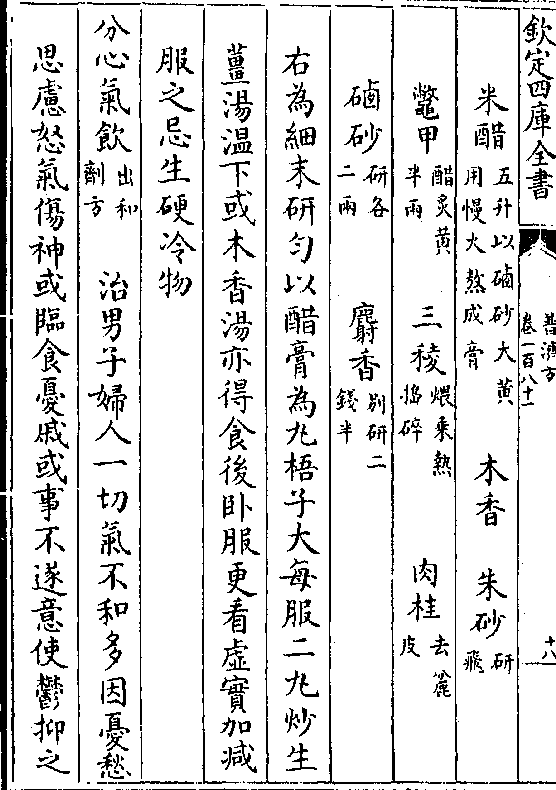 欽定四庫全書
普濟方
卷一百八十一
十八
米醋五升以硇砂大黃用慢火熬成膏 木香 朱砂研飛
鼈甲醋炙黃半兩 三稜煨乘熱搗碎 肉桂去麄皮
硇砂研各二兩 麝香别研二錢半
右為細末研匀以醋膏為丸梧子大每服二丸炒生
薑湯温下或木香湯亦得食後卧服更看虛實加減
服之忌生硬冷物
分心氣飲出和劑方 治男子婦人一切氣不和多因憂愁
思慮怒氣傷神或臨食憂戚或事不遂意使鬱抑之